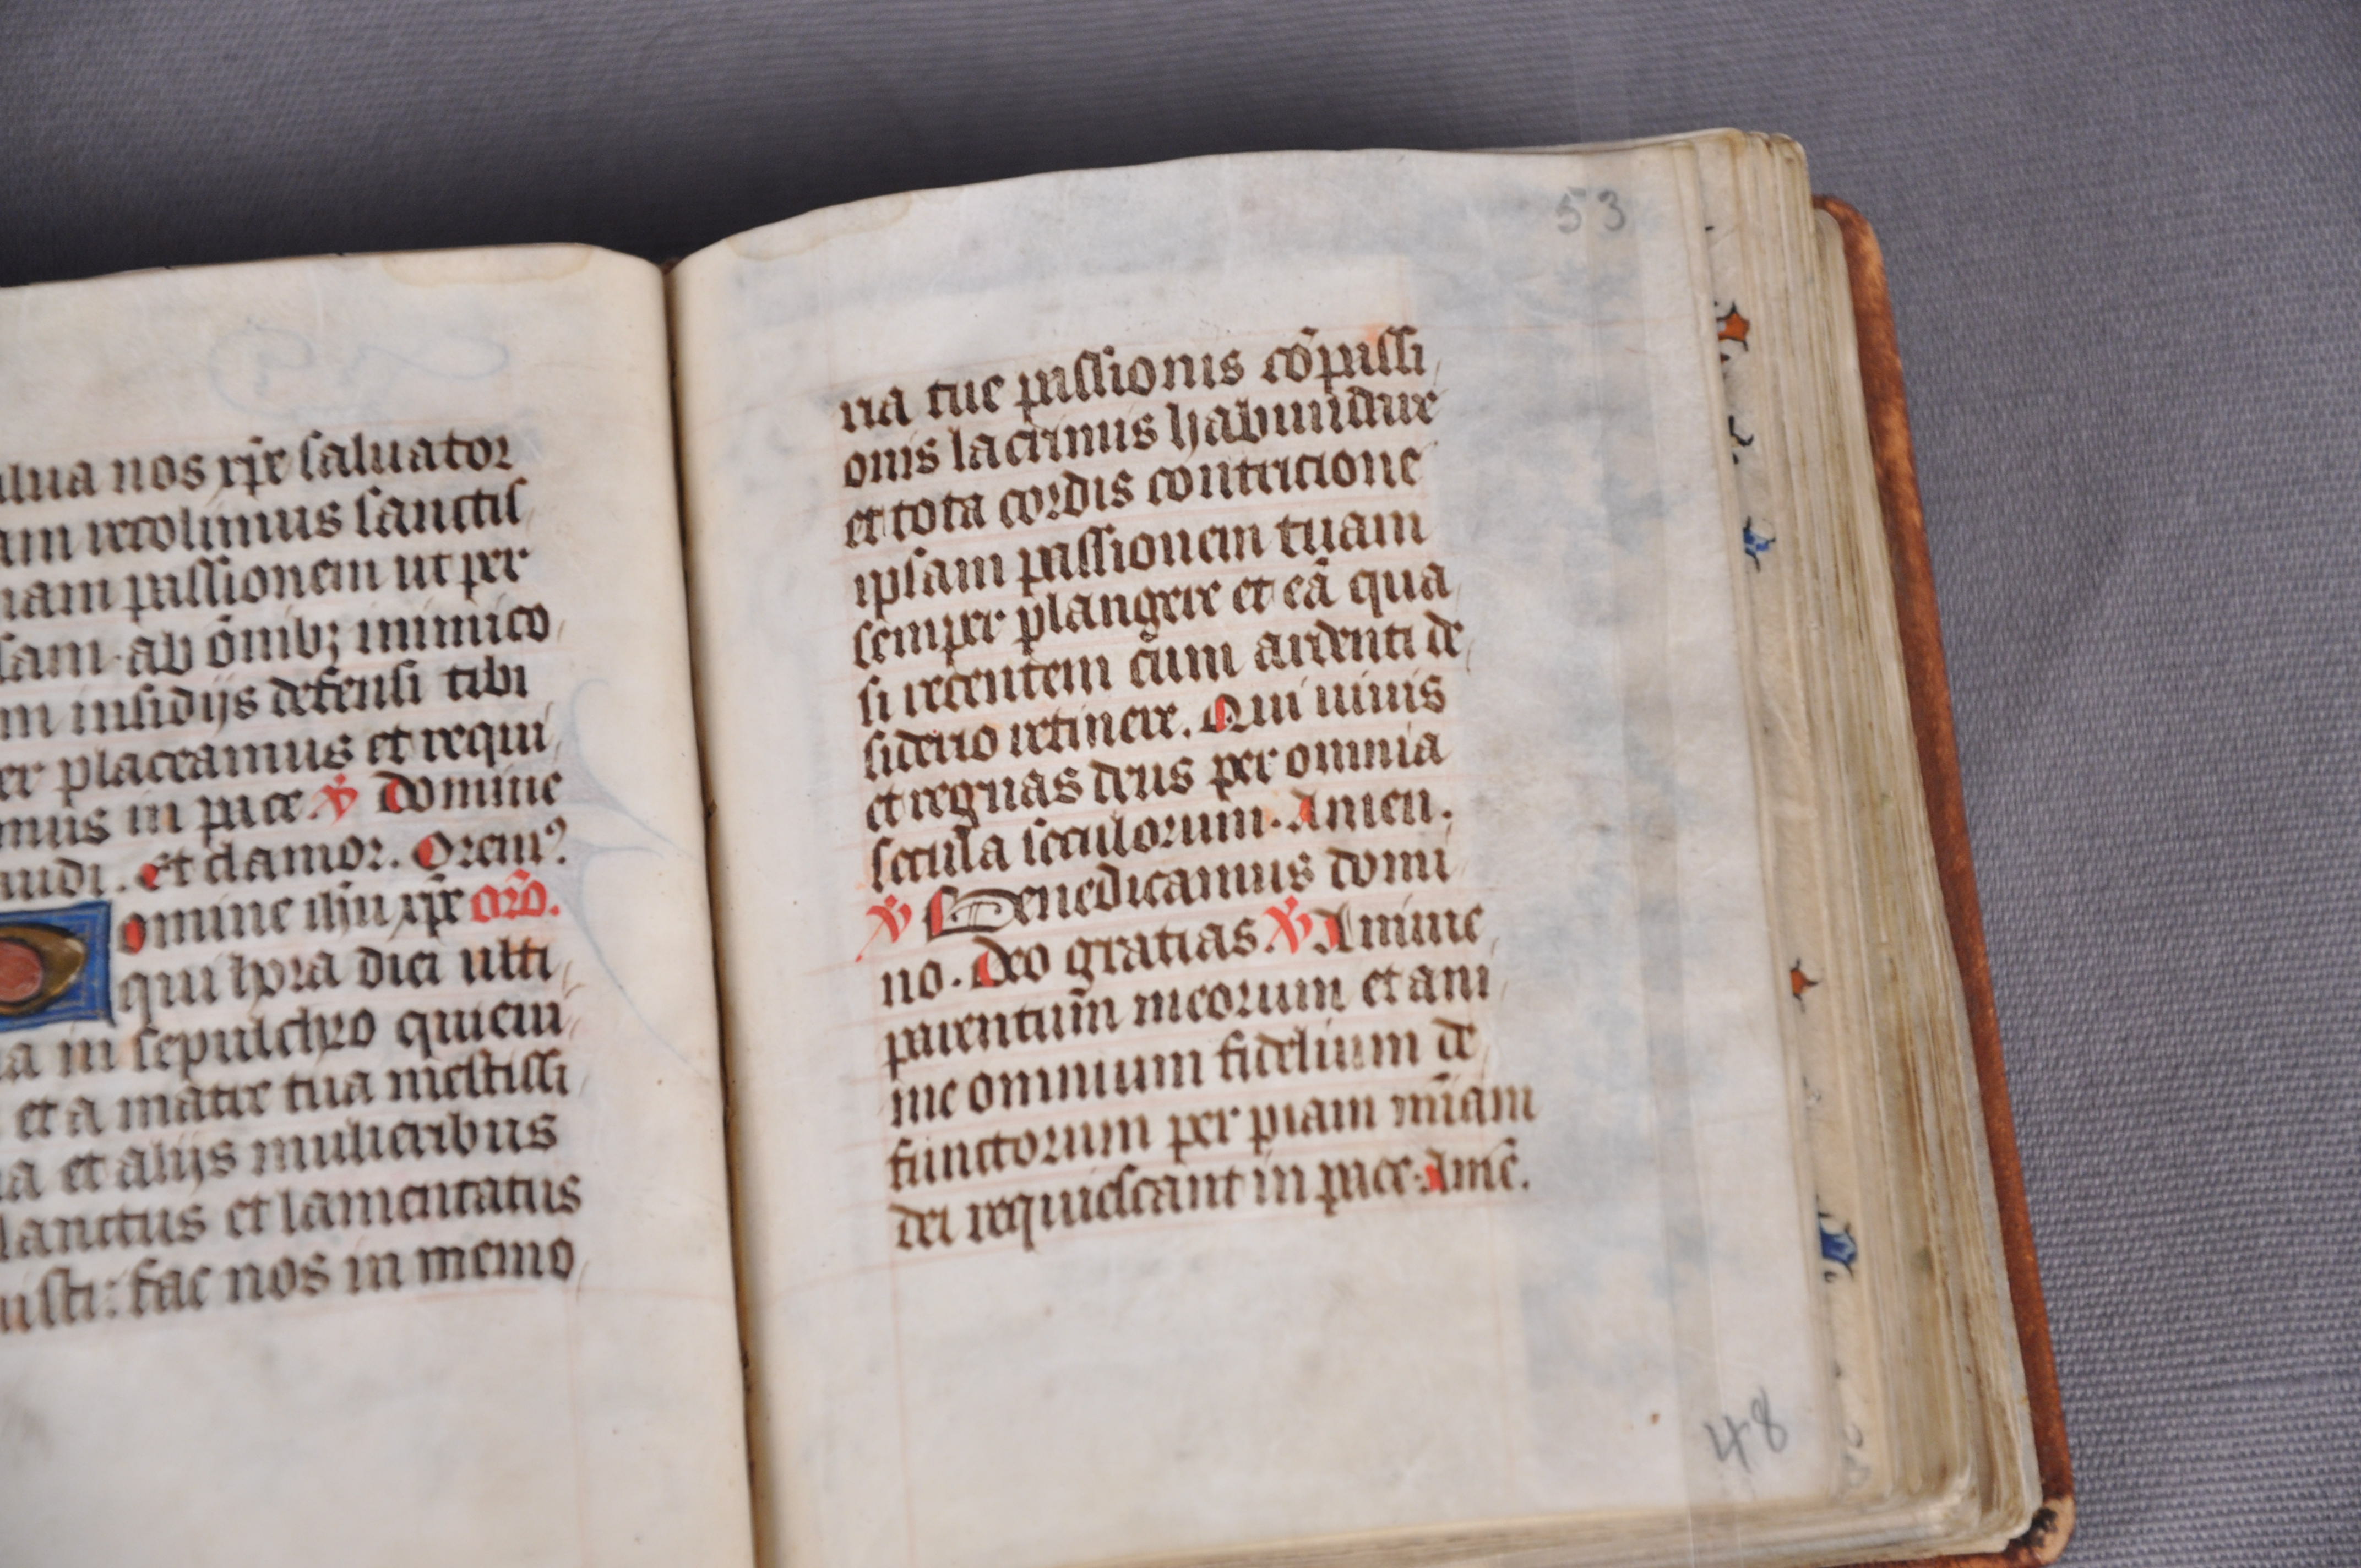 alua nos xp̄e saluator
am recolimus sanctis
nam passionem ut per
sam ab om̄ib; inimico
m insidijs defensi tibi
er placeamus et requi
mus in pace ℣ Domine
audi. et clamor. Oremꝰ.
omine ihu xp̄e orō.
qui hora diei ulti
a in sepulchro quieui
et a matre tua mestissi
a et alijs mulieribus
lanctus et lamentatus
uisti: fac nos in memo
53
ria tue passionis cōpassi
onis lacrimis habundare
et tota cordis contricione
ipsam passionem tuam
semper plangere et eā qua
si recentem cum ardenti de
siderio retinere. Qui uiuis
et regnas deus per omnia
secula seculorum. Amen.
℣ Benedicamus domi
no. Deo gratias. ℣ Anime
parentum meorum et ani
me omnium fidelium de
functorum per piam mīam
dei requiescant in pace. Amē.
48